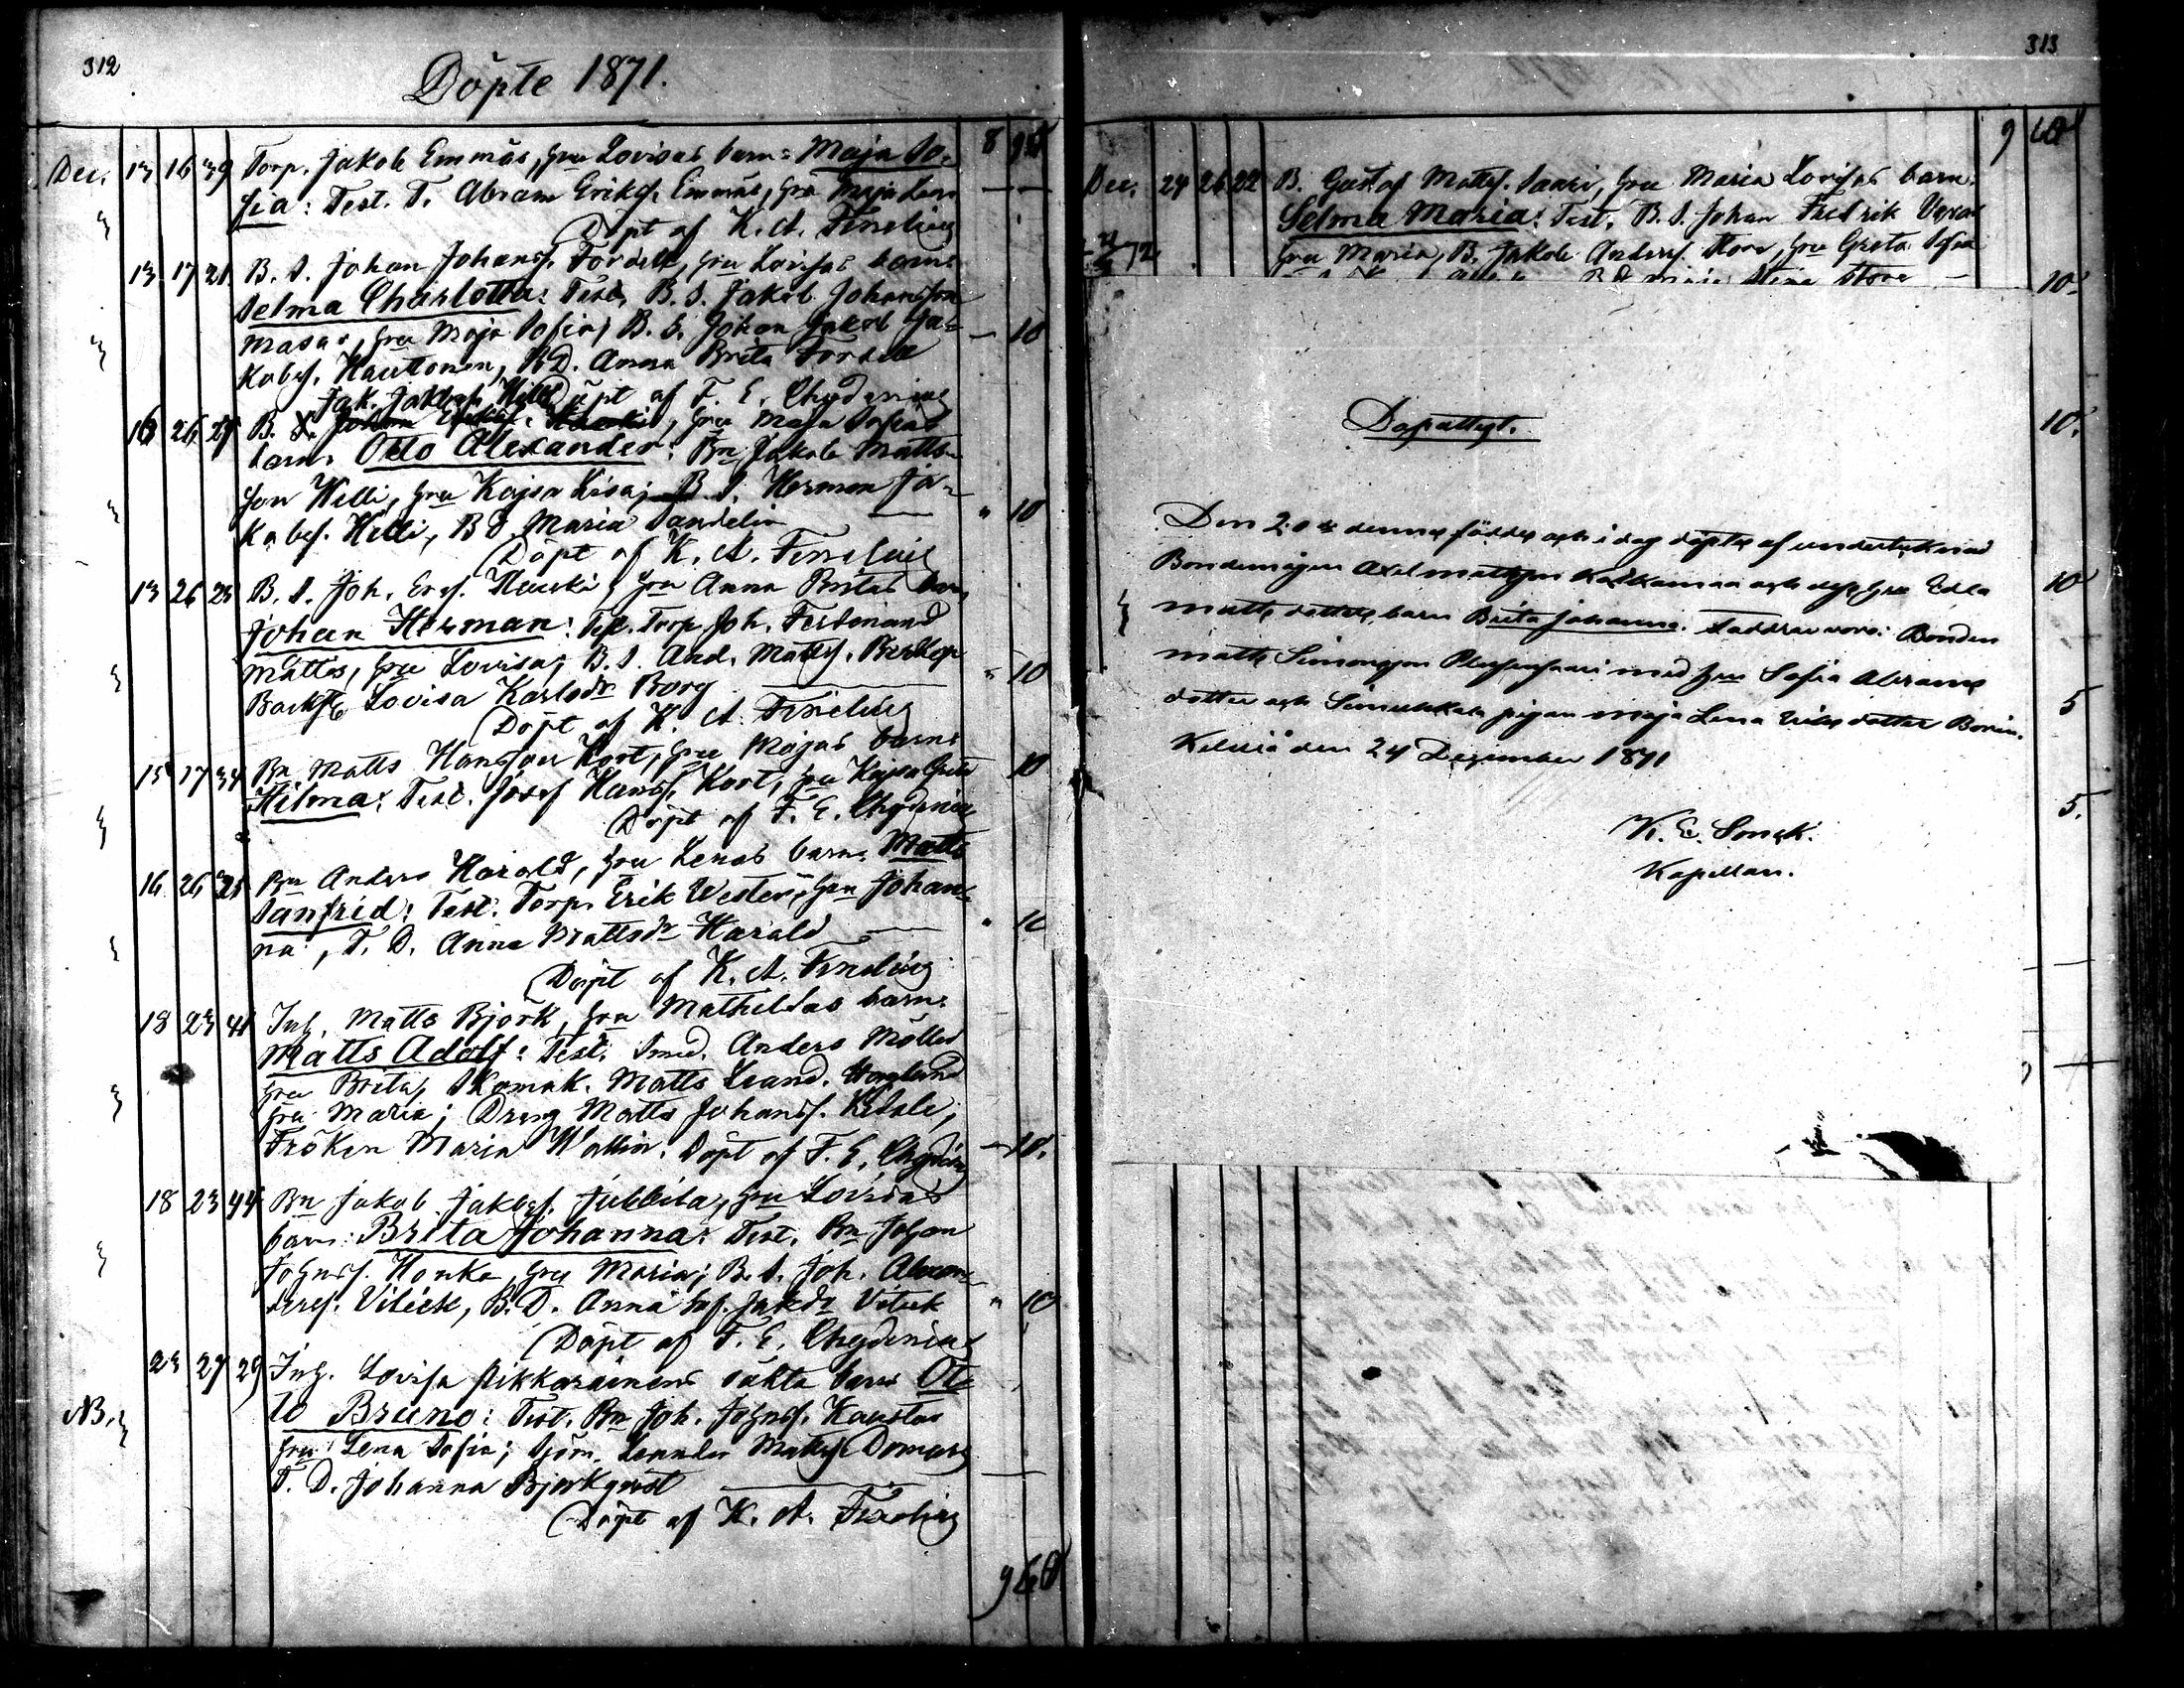 312
Döpte 1871.
Dec. 13 16 39 Torp. Jakob Emmäs, hru Lovisas barn: Maja So- 8 90
fia: Test. T. Abram Eriksf. Emmäs, hru Maja Lena — —
Döpt af K. A. Finelius
13 17 21 B. S. Johan Johansf. Fordell, hru Lovisas barn:
Selma Charlotta: Test. B. S. Jakob Johansson
hru Maja Sofia; B. S. Johan Jakob Ja- — 10
kobsf. Hauttonen, B.D. Anna Brita Fordell
Döpt af F. E. Chydenius
Jak. Jakobsf. Hilli
16 26 27 B. S. hru Maja Sofias
barn: Otto Alexander: Bn Jakob Matts-
son Willi, hru Kajsa Lisa; B. S. Herman Ja-
kobsf. Hilli, B D. Maria Sandelin — " 10
Döpt af K. A. Finelius
13 26 23 B. S. Joh. Ersf. Hauki, hru Anna Britas barn
Johan Herman: Test. Torp. Joh. Ferdinand
Mattis, hru Lovisa; B. S. And. Mattsf.
Lovisa Karlsdr Borg — " 10
Döpt af K. A. Finelius
15 17 34 Bn Matts Hansson Kort, hru Majas barn: 10
Hilma: Test. Josef Hansf. Kort, hru Kajsa Greta
Döpt af F. E. Chydenius
16 26 21 Bn Anders Harald, hru Lenas barn: Matts
Sanfrid: Test. Torp. Erik Wester, hru Johan-
na, T. D. Anna Mattsdr Harald — " 10
Döpt af K. A. Finelius
18 23 41 Inh. Matts Björk, hru Mathildas barn:
Matts Adolf: Test. Smed. Anders Möller
hru Brita; Skomak. Matts Leand. Haglund
hru Maria; Dreng Matts Johansf. Ketale;
Fröken Maria Wallin. Döpt af F. E. Chydenius — 10.
18 23 44 Bn Jakob Jakobsf. Jubbila, hru Lovisas
barn: Brita Johanna: Test. Bn Johan
Johansf. Honka, hru Maria; B. S. Joh. Alexan-
dersf. Vitick, B. D. Anna Jakdr Vitick " 10
Döpt af F. E. Chydenius
23 27 29 Inh. Lovisa Pikkarainens oäkta barn Ot-
NB. to Bruno: Test. Bn Joh. Johnsf. Kaustar
hru Lena Sofia; Sjöm. Leander Mattsf. Domars
T. D. Johanna Björkqvist —
Döpt af K. A. Finelius
9 60
313
9 60
Dec. 24 26 22 B. Gustaf Mattsf. Saari, hru Maria Lovisas barn:
Selma Maria: Test. B. S. Johan Fredrik
hru Maria, B. Jakob Andersf. Store, hru Greta Sofia
B D Stina Store — 10.
Dopattest. 10.
Den 20de dennes föddes och i dag döptes af undertecknad
Bondemågen Axel Mattsson och dess hru Edla 10
Matts dotters barn Brita Johanna. Faddrar voro: Bonden
Matts Simonsson med hru Sofia Abrams
dotter och pigan Maja Lena Eriks dotter 5
Kelviå den 24 December 1871
5.
K. E. Smak.
Kapellan.